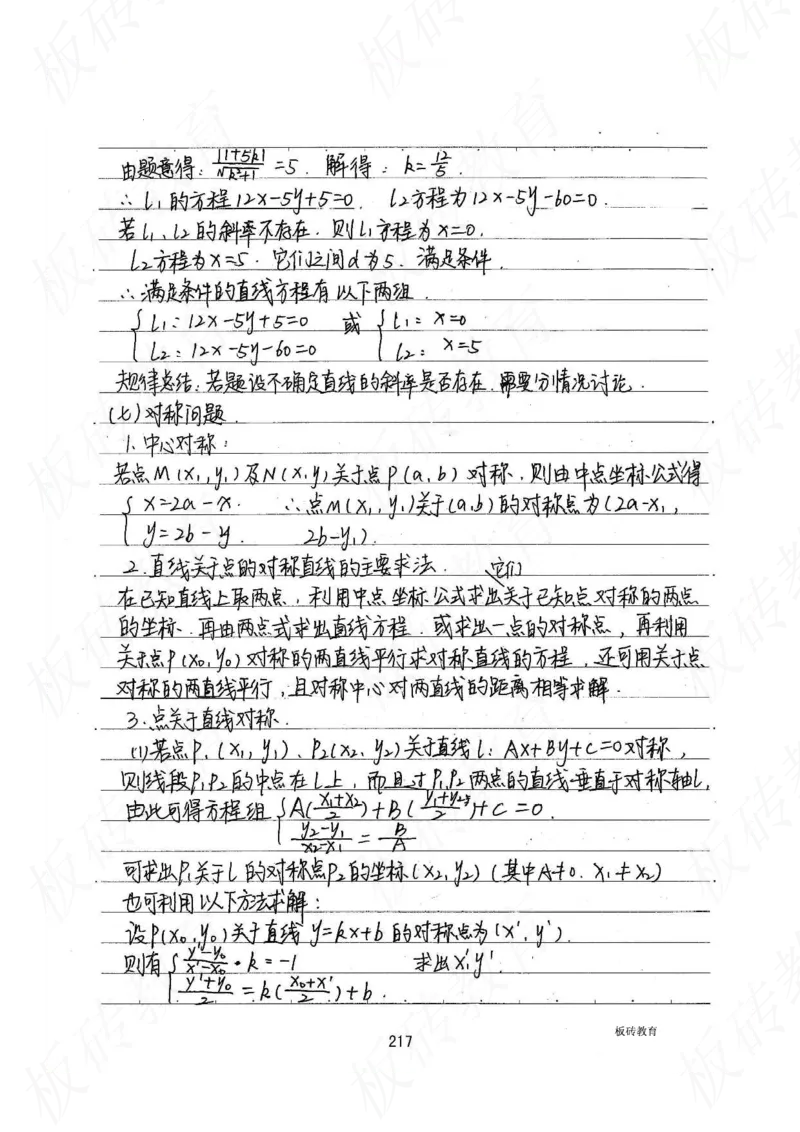 由题意得: |1+5k|/√k²+1 =5. 解得: k=12/5.
∴ L₁的方程12x-5y+5=0. L₂方程为12x-5y-60=0.
若L₁、L₂的斜率不存在. 则L₁方程为x=0.
L₂方程为x=5. 它们之间d为5. 满足条件.
∴满足条件的直线方程有以下两组.
{L₁: 12x-5y+5=0 或 {L₁: x=0
L₂: 12x-5y-60=0 L₂: x=5
规律总结: 若题设不确定直线的斜率是否存在. 需要分情况讨论.
(七)对称问题.
1. 中心对称:
若点M(x₁,y₁)及N(x,y)关于点P(a,b)对称. 则由中点坐标公式得
{x=2a-x. ∴点M(x₁,y₁)关于(a,b)的对称点为(2a-x₁,
y=2b-y. 2b-y₁).
2. 直线关于点的对称直线的主要求法. 它们
在已知直线上取两点, 利用中点坐标公式求出关于已知点对称的两点
的坐标. 再由两点式求出直线方程. 或求出一点的对称点, 再利用
关于点P(x₀,y₀)对称的两直线平行求对称直线的方程, 还可用关于点
对称的两直线平行, 且对称中心对两直线的距离相等求解.
3. 点关于直线对称.
(1)若点P₁(x₁,y₁)、P₂(x₂,y₂)关于直线l: Ax+By+C=0对称,
则线段P₁P₂的中点在l上, 而且过P₁P₂两点的直线垂直于对称轴l,
由此可得方程组 {A(x₁+x₂/2)+B(y₁+y₂/2)+C=0.
y₂-y₁/x₂-x₁ = B/A
可求出P₁关于l的对称点P₂的坐标(x₂,y₂)(其中A≠0. x₁≠x₂)
也可利用以下方法求解:
设P(x₀,y₀)关于直线y=kx+b的对称点为(x',y').
则有 {y'-y₀/x'-x₀ · k=-1 求出x'y'.
y'+y₀/2 = k(x₀+x'/2)+b.
217
板砖教育